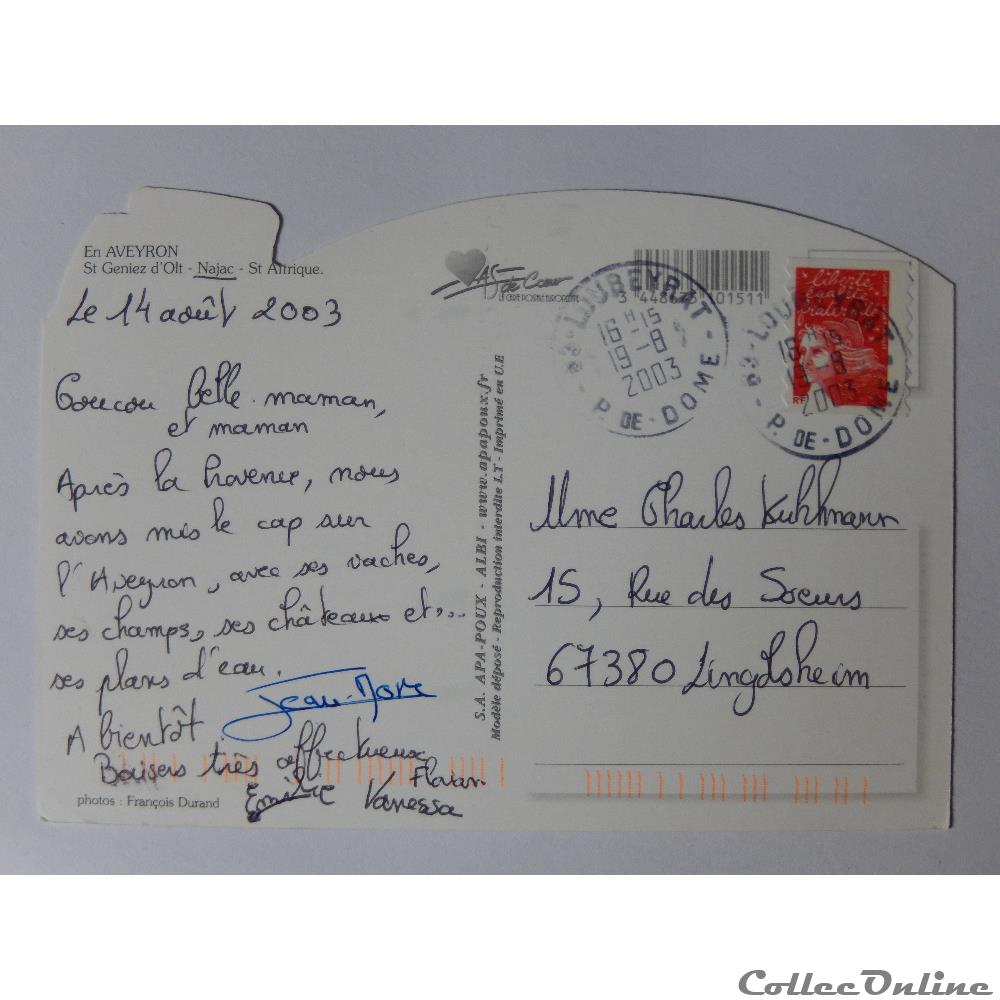 En AVEYRON
St Geniez d'Olt - Najac - St Affrique.
Le 14 août 2003
Coucou belle-maman,
et maman
Après la Provence, nous
avons mis le cap sur
l'Aveyron, avec ses vaches,
ses champs, ses châteaux et...
ses plans d'eau.
A bientôt
Jean-Marc
Baisers très affectueux
Florian
Emilie Vanessa
photos : François Durand
As de Cœur
LA CARTE POSTALE EUROPEENNE
3 448673 101511
S.A. APA-POUX - ALBI - www.apapoux.fr
Modèle déposé - Reproduction interdite L.T - Imprimé en U.E
LOUBEYRAT
16 H 15
19-8
2003
P. DE-DOME
liberté
RF
LOUBEYRAT
16 H 15
19-8
2003
P. DE-DOME
Mme Charles Kuhlmann
15, Rue des Soeurs
67380 Lingolsheim
CollecOnline